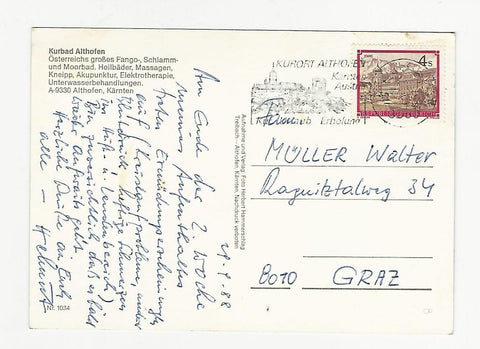 Kurbad Althofen
Österreichs großes Fango-, Schlamm-
und Moorbad. Heilbäder, Massagen,
Kneipp, Akupunktur, Elektrotherapie,
Unterwasserbehandlungen.
A-9330 Althofen, Kärnten
29.4.88
Am Ende der 2. Woche
meines Aufenthaltes
treten Ermüdungserscheinungen
auf (Kreislaufprobleme, und
heftige Schmerzen
im Hüft- u. Lendenbereich)
Bin zuversichtlich, daß es bald
wieder aufwärts geht.
Herzliche Grüße an Euch
alle – Helmut
Nr. 1034
Aufnahme und Verlag: Foto Herbert Hammerschlag
Treibach - Althofen, Kärnten, Nachdruck verboten
KURORT ALTHOFEN
Kärnten
Austria
Kur Urlaub Erholung
4s
REPUBLIK ÖSTERREICH
MÜLLER Walter
Ragnitztalweg 34
8010 GRAZ